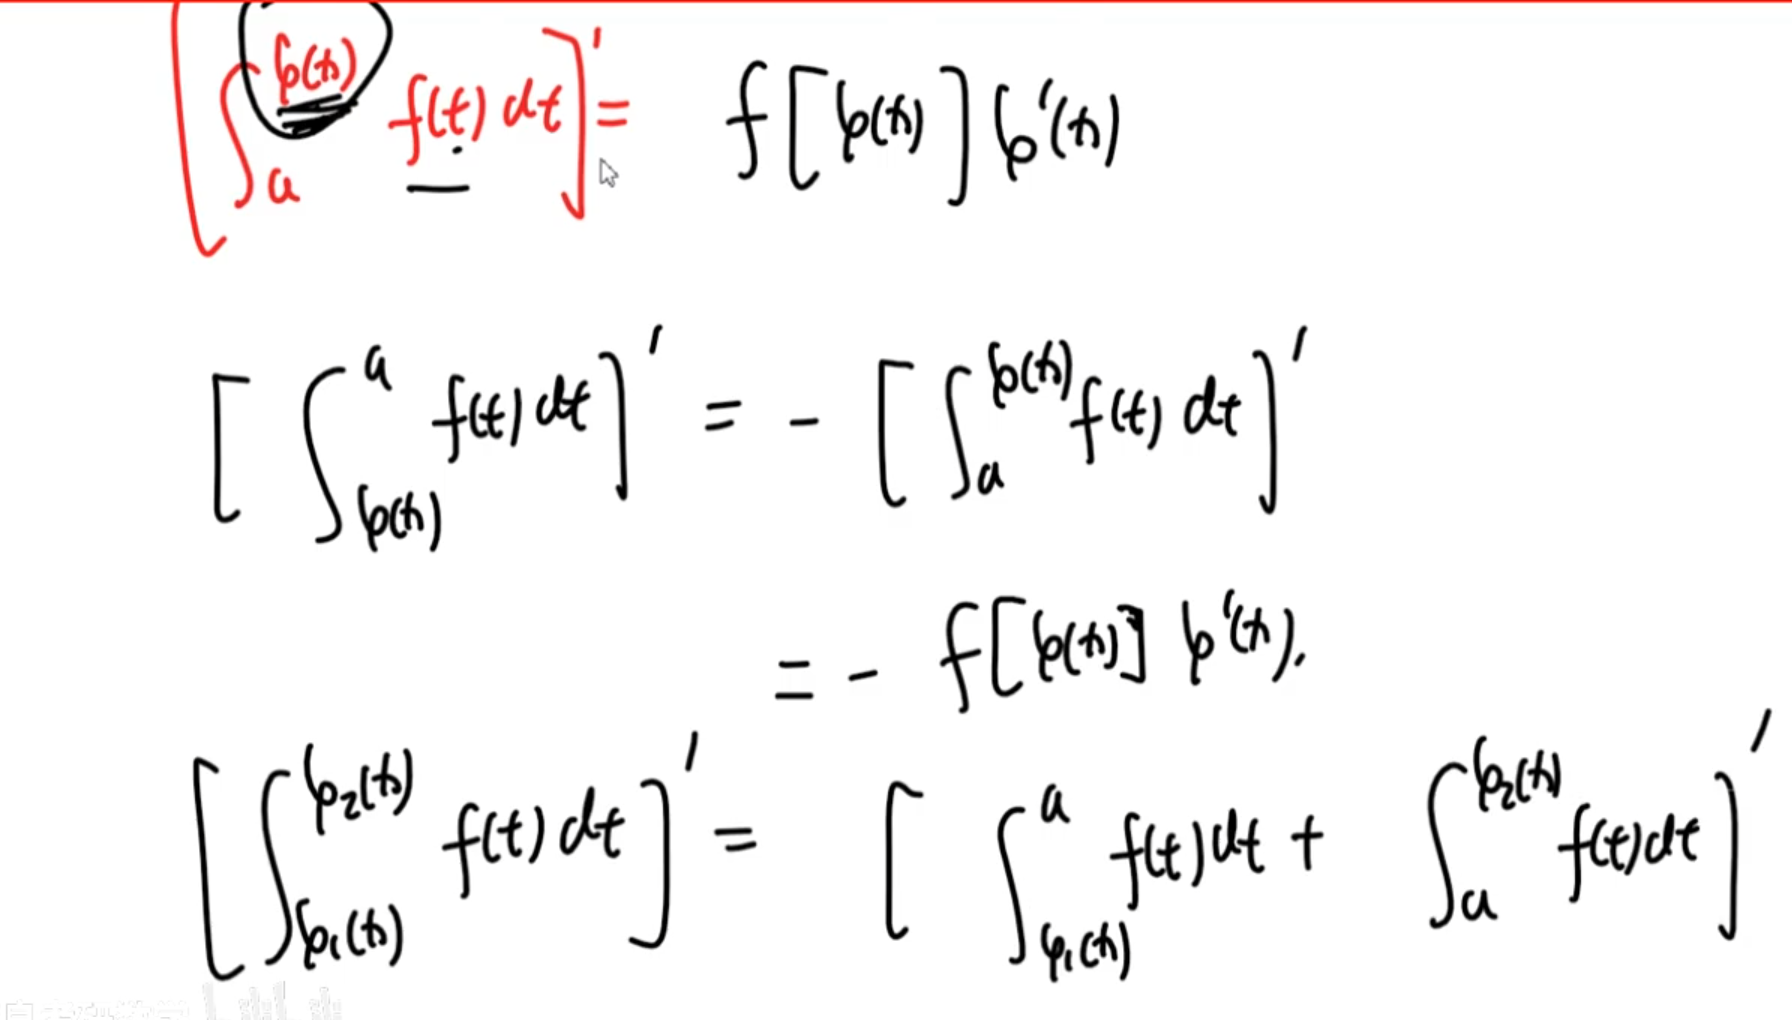 [∫_a^{φ(x)} f(t) dt]' = f[φ(x)] φ'(x)
[∫_{φ(x)}^a f(t) dt]' = - [∫_a^{φ(x)} f(t) dt]'
= - f[φ(x)] φ'(x).
[∫_{φ₁(x)}^{φ₂(x)} f(t) dt]' = [∫_{φ₁(x)}^a f(t) dt + ∫_a^{φ₂(x)} f(t) dt]'